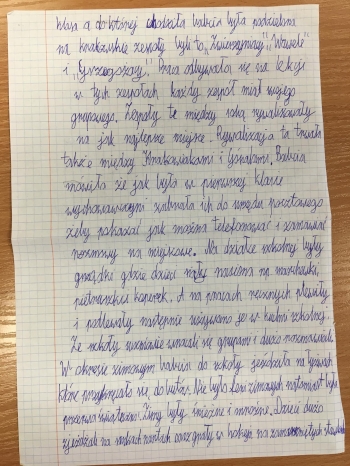 klasa a do której chodziła babcia była podzielona
na krakowskie zespoły były to, "Zwierzyniacy" "Wawele"
i "Grzegorzacy". Praca odbywała się na lekcji
w tych zespołach, każdy zespół miał swojego
grupowego. Zespoły te między sobą rywalizowały
na jak najlepsze miejsce. Rywalizacja ta trwała
także między Krakowiakami i Babcia
mówiła że jak była w pierwszej klasie
wychowawczyni zabrała ich do urzędu pocztowego
żeby pokazać jak można telefonować i zamawiać
rozmowy na miejscowe. Na działce szkolnej były
grządki gdzie dzieci siały nasiona np marchewki,
pietruszki koperek. A na pracach ręcznych plewiły
i podlewały następnie używano je w kuchni szkolnej.
Ze szkoły wracali się grupami i dużo rozmawiali.
W okresie zimowym babcia do szkoły jeździła na łyżwach
które przykręcało się do butów. Nie było ferii zimowych natomiast była
przerwa świąteczna. Zimy były śnieżne i mroźne. Dzieci dużo
zjeżdżali na sankach nartach oraz grały w hokeja na zamarzniętych stawach